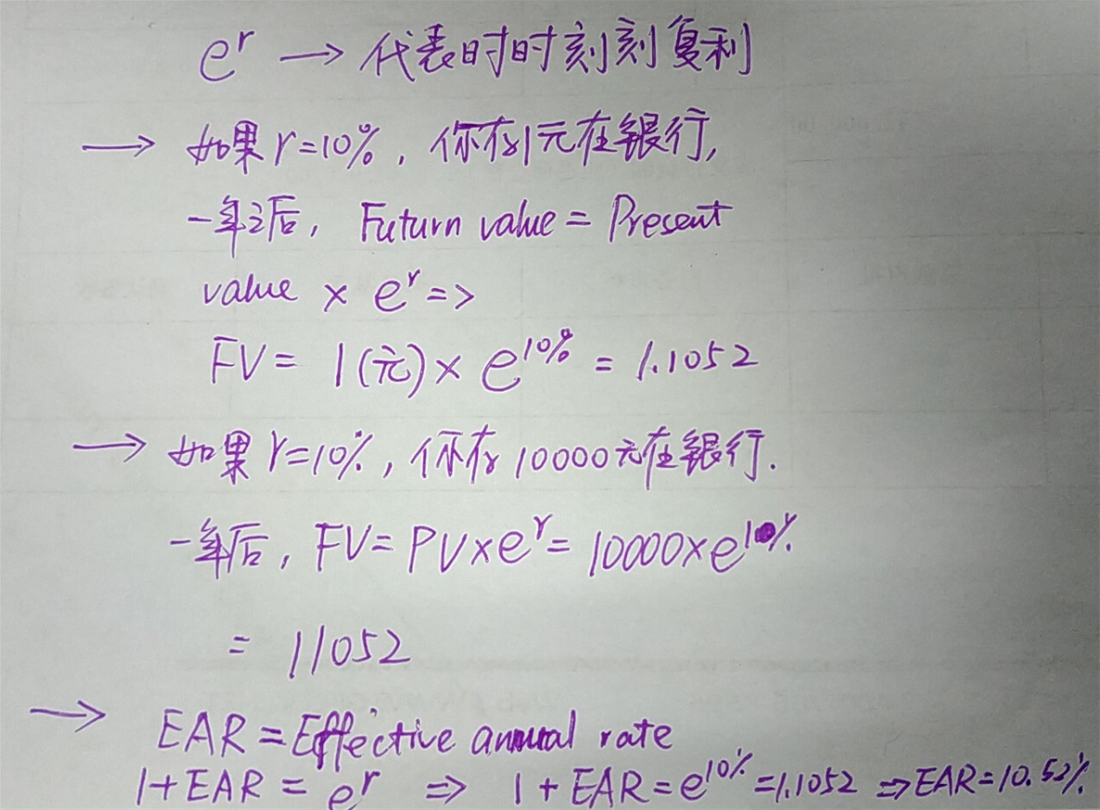 e^r → 代表时时刻刻复利
→ 如果 r=10%, 你存1元在银行,
一年之后, Futurn value = Present
value × e^r =>
FV = 1(元) × e^10% = 1.1052
→ 如果 r=10%, 你存 10000元在银行.
一年后, FV = PV×e^r = 10000×e^10%
= 11052
→ EAR = Effective annual rate
1+EAR = e^r ⇒ 1+EAR = e^10% = 1.1052 ⇒ EAR=10.52%